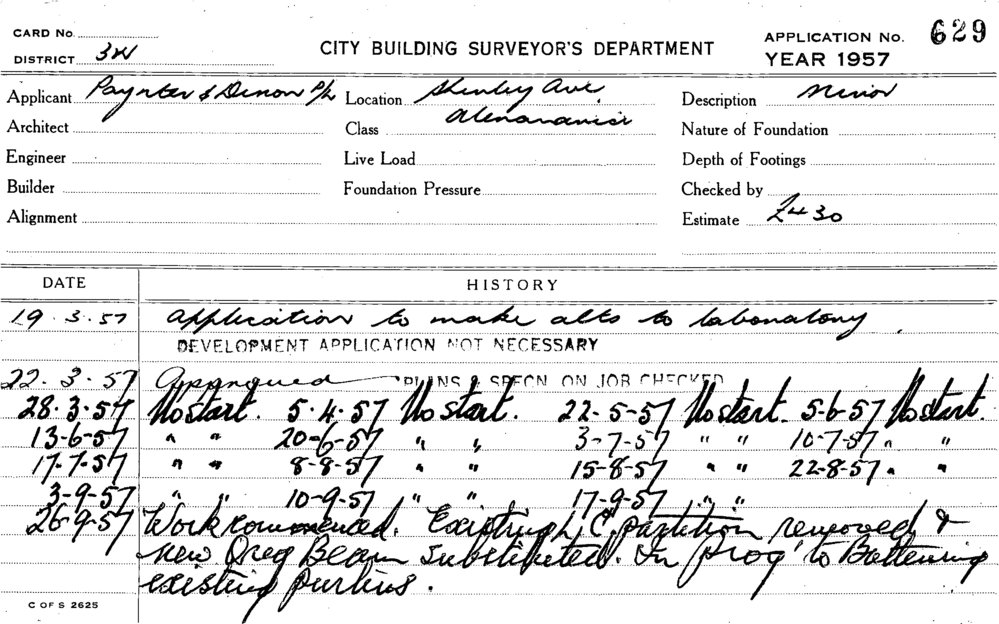 CARD No.
DISTRICT 3W
CITY BUILDING SURVEYOR'S DEPARTMENT
APPLICATION No. 629
YEAR 1957
Applicant Paynter & Dixon P/L Location Shirley Ave. Description Minor
Architect Class Alexandria Nature of Foundation
Engineer Live Load Depth of Footings
Builder Foundation Pressure Checked by
Alignment Estimate £430
DATE HISTORY
19.3.57 Application to make alts to laboratory.
DEVELOPMENT APPLICATION NOT NECESSARY
22.3.57 Approved PLANS & SPECN ON JOB CHECKED
28.3.57 No start. 5.4.57 No start. 22-5-57 No start. 5-6-57 No start.
13-6-57 " " 20-6-57 " " 3-7-57 " " 10-7-57 " "
17-7-57 " " 8-8-57 " " 15-8-57 " " 22-8-57 " "
3-9-57 " " 10-9-57 " " 17-9-57 " "
26-9-57 Work commenced. Existing partition removed &
new Oreg Beam substituted. In prog' to Battening
existing purlins.
C OF S 2625